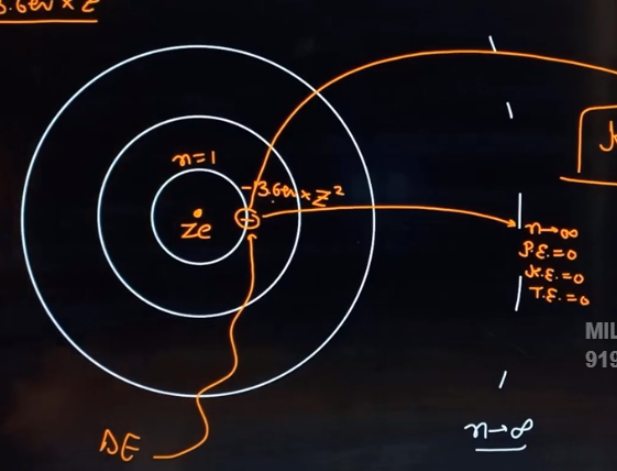 3.6ev × Z
n=1
-13.6ev × Z²
Ze
n→∞
P.E.=0
K.E.=0
T.E.=0
MIL
919
ΔE
n→∞